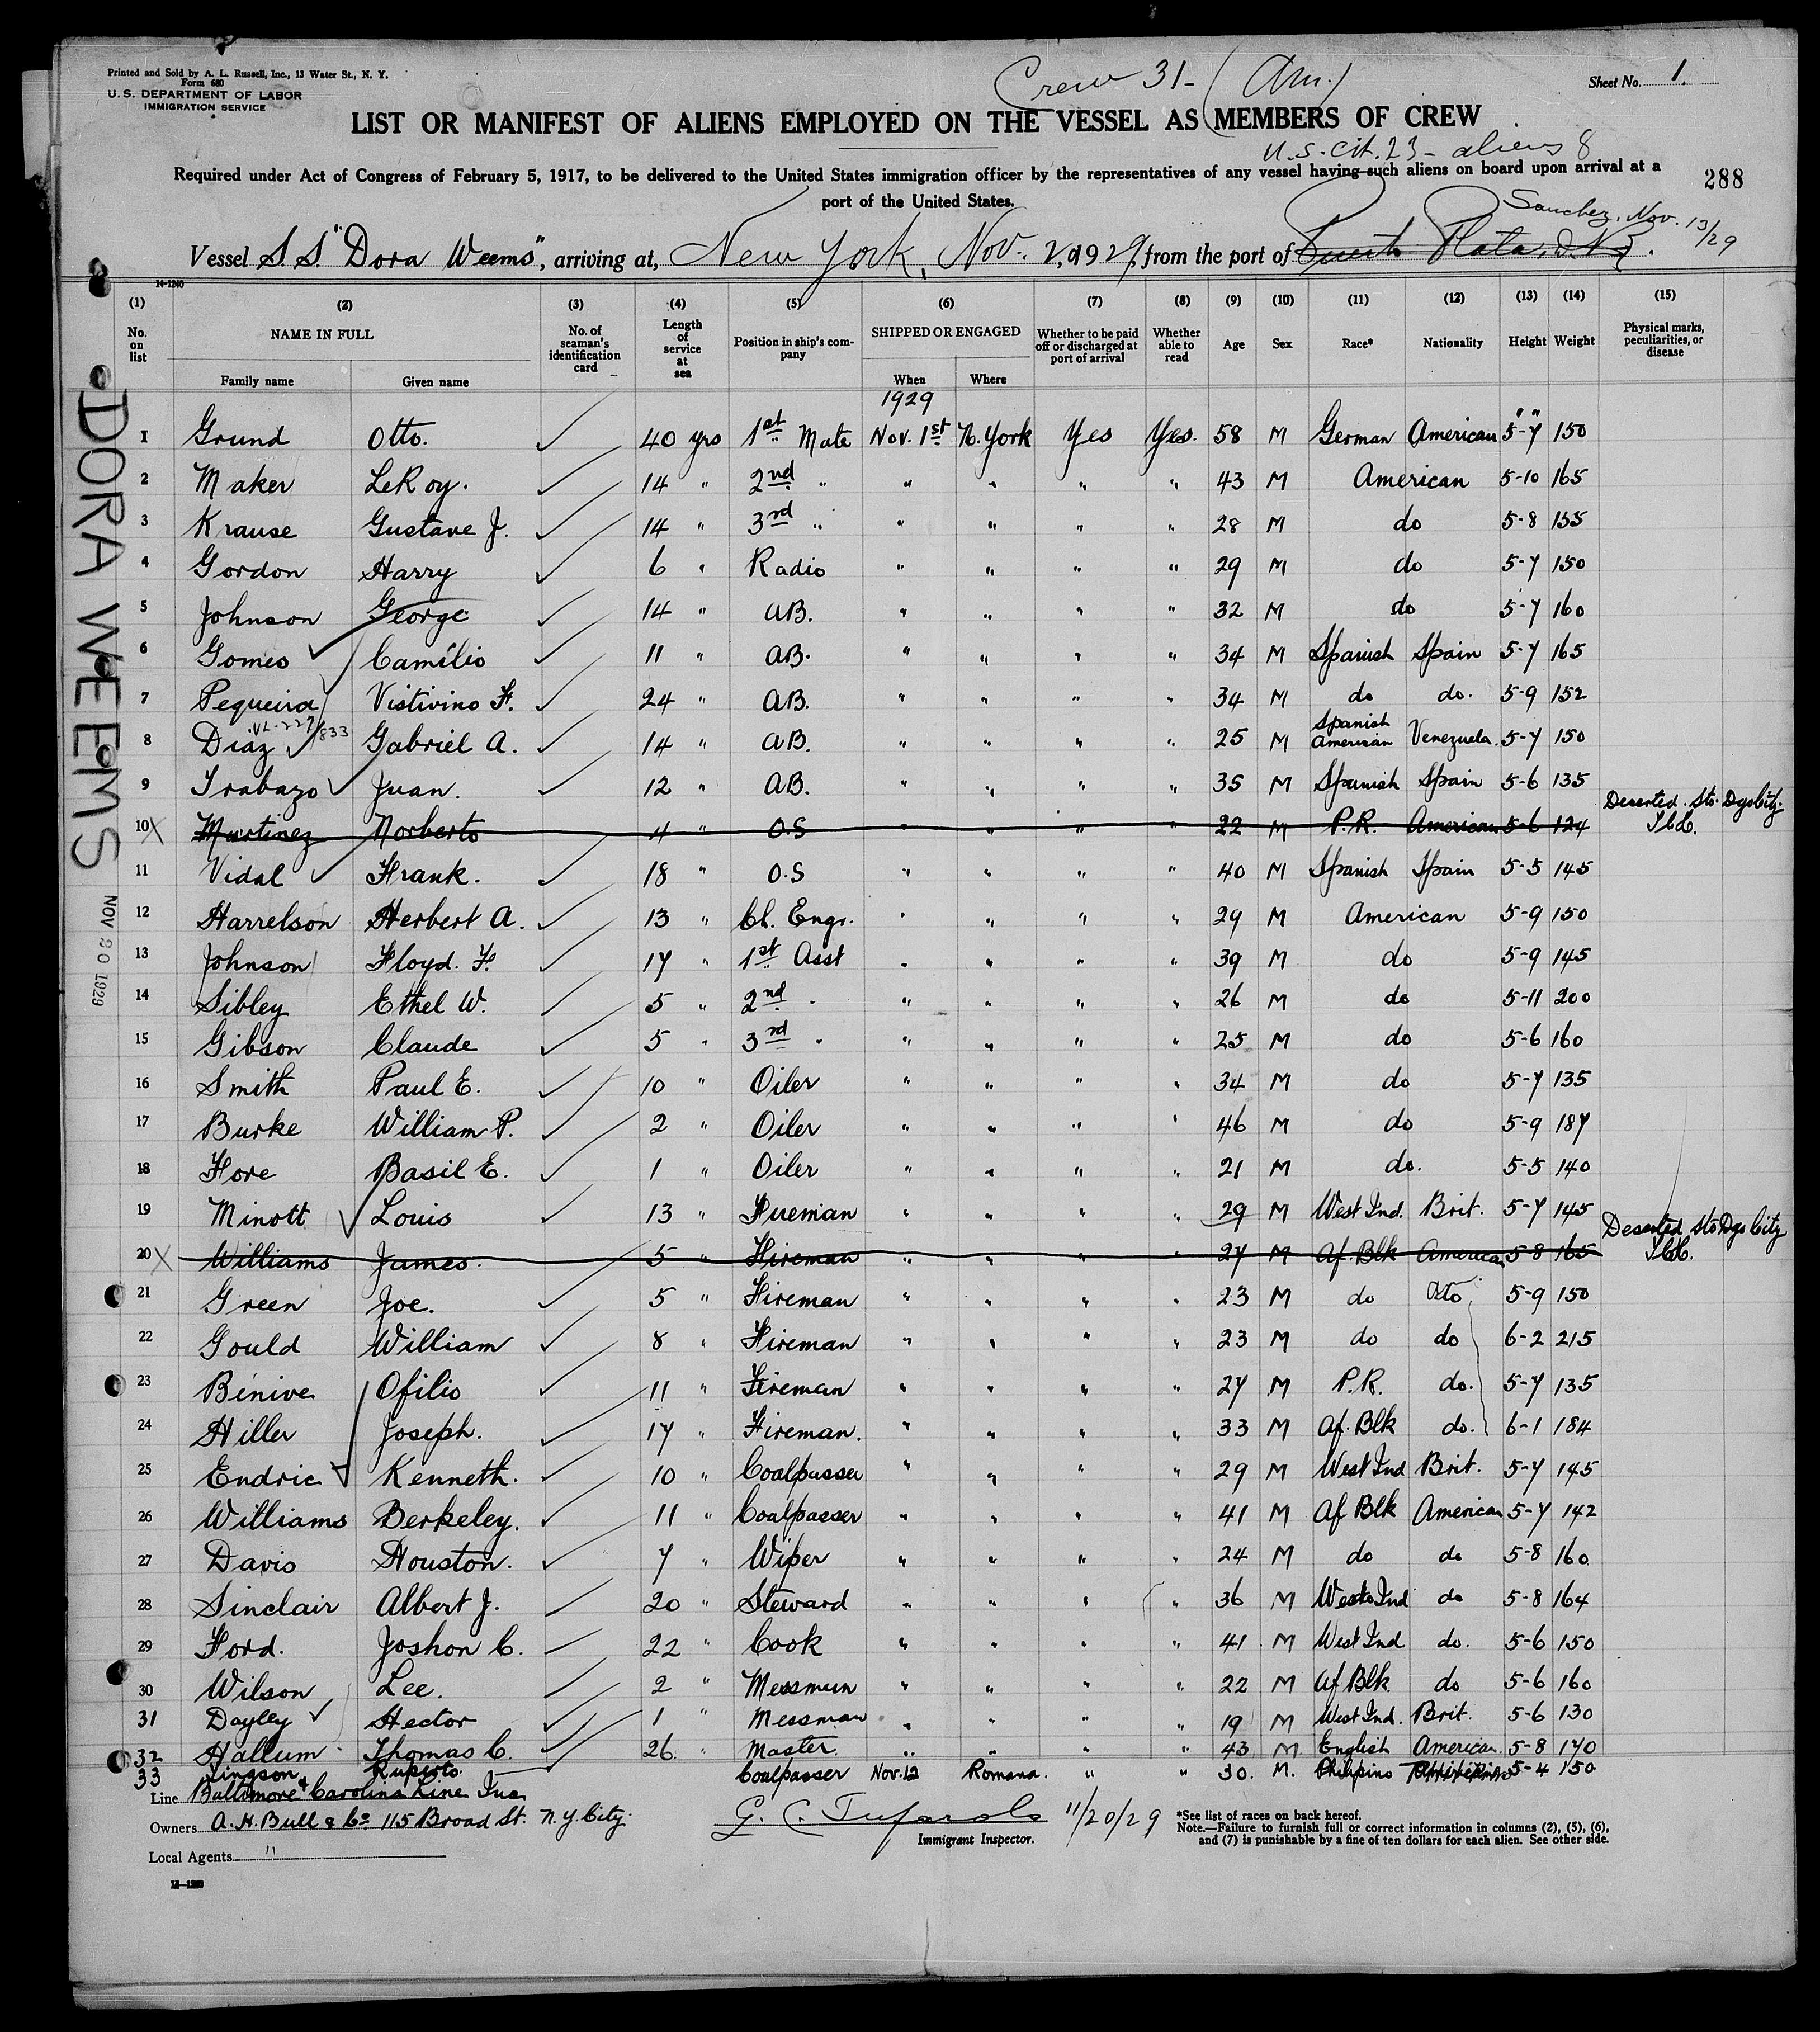 Printed and Sold by A. L. Russell, Inc., 13 Water St., N. Y.
Form 680
U. S. DEPARTMENT OF LABOR
IMMIGRATION SERVICE
Crew 31- (Am.)
Sheet No. 1.
LIST OR MANIFEST OF ALIENS EMPLOYED ON THE VESSEL AS MEMBERS OF CREW
U.S. Cit. 23 - aliens 8
Required under Act of Congress of February 5, 1917, to be delivered to the United States immigration officer by the representatives of any vessel having such aliens on board upon arrival at a
port of the United States.
288
Sanchez, Nov. 13/29
Vessel S.S. "Dora Weems", arriving at, New York, Nov. 2, 1929, from the port of Puerto Plata, D.R.
14-1240
(1) (2) (3) (4) (5) (6) (7) (8) (9) (10) (11) (12) (13) (14) (15)
No. on list NAME IN FULL No. of seaman's identification card Length of service at sea Position in ship's company SHIPPED OR ENGAGED Whether to be paid off or discharged at port of arrival Whether able to read Age Sex Race* Nationality Height Weight Physical marks, peculiarities, or disease
Family name Given name When Where
1929
1 Grund Otto. 40 yrs 1st Mate Nov. 1st N. York Yes Yes. 58 M German American 5'-7" 150
2 Maker LeRoy. 14 " 2nd " " " " " 43 M American 5-10 165
3 Krause Gustave J. 14 " 3rd " " " " " 28 M do 5-8 155
4 Gordon Harry 6 " Radio " " " " 29 M do 5-7 150
5 Johnson George 14 " AB. " " " " 32 M do 5-7 160
6 Gomes Camilio 11 " AB. " " " " 34 M Spanish Spain 5-7 165
7 Pequeira Vistivino F. 24 " AB. " " " " 34 M do do. 5-9 152
8 Diaz Gabriel A. 14 " AB. " " " " 25 M Spanish American Venezuela. 5-7 150
9 Trabazo Juan. 12 " AB. " " " " 35 M Spanish Spain 5-6 135
10 X Martinez Norberto 4 " O.S " " " " 22 M P.R. American 5-6 124 Deserted. Sto. Dgo City.
11 Vidal Frank. 18 " O.S " " " " 40 M Spanish Spain 5-5 145
12 Harrelson Herbert A. 13 " Ch. Engr. " " " " 29 M American 5-9 150
13 Johnson Floyd. F. 17 " 1st Asst " " " " 39 M do 5-9 145
14 Sibley Ethel W. 5 " 2nd " " " " " 26 M do 5-11 200
15 Gibson Claude 5 " 3rd " " " " " 25 M do 5-6 160
16 Smith Paul E. 10 " Oiler " " " " 34 M do 5-7 135
17 Burke William P. 2 " Oiler " " " " 46 M do 5-9 187
18 Fore Basil E. 1 " Oiler " " " " 21 M do. 5-5 140
19 Minott Louis 13 " Fireman " " " " 29 M West Ind. Brit. 5-7 145
20 X Williams James. 5 " Fireman " " " " 27 M Af. Blk American 5-8 165 Deserted Sto Dgo City
21 Green Joe. 5 " Fireman " " " " 23 M do do 5-9 150
22 Gould William 8 " Fireman " " " " 23 M do do 6-2 215
23 Benive Ofilio 11 " Fireman " " " " 27 M P.R. do. 5-7 135
24 Hiller Joseph. 17 " Fireman. " " " " 33 M Af. Blk do. 6-1 184
25 Endric Kenneth. 10 " Coalpasser " " " " 29 M West Ind Brit. 5-7 145
26 Williams Berkeley. 11 " Coalpasser " " " " 41 M Af Blk American 5-7 142
27 Davis Houston. 7 " Wiper " " " " 24 M do do 5-8 160
28 Sinclair Albert J. 20 " Steward " " " " 36 M West Ind do 5-8 164
29 Ford. Joshon C. 22 " Cook " " " " 41 M West Ind do. 5-6 150
30 Wilson Lee. 2 " Messman " " " " 22 M Af Blk do 5-6 160
31 Dayley Hector 1 " Messman " " " " 19 M West Ind. Brit. 5-6 130
32 Hallum Thomas C. 26 " Master. " " " " 43 M English American 5-8 170
33 Singson Ruperto. Coalpasser Nov. 12 Romana. " " 30. M. Philipino 5-4 150
DORA WEEMS
NOV 20 1929
Line Baltimore & Carolina Line Inc.
Owners A. H. Bull & Co 115 Broad St. N.Y. City.
Local Agents "
11/20/29
Immigrant Inspector.
*See list of races on back hereof.
Note.—Failure to furnish full or correct information in columns (2), (5), (6),
and (7) is punishable by a fine of ten dollars for each alien. See other side.